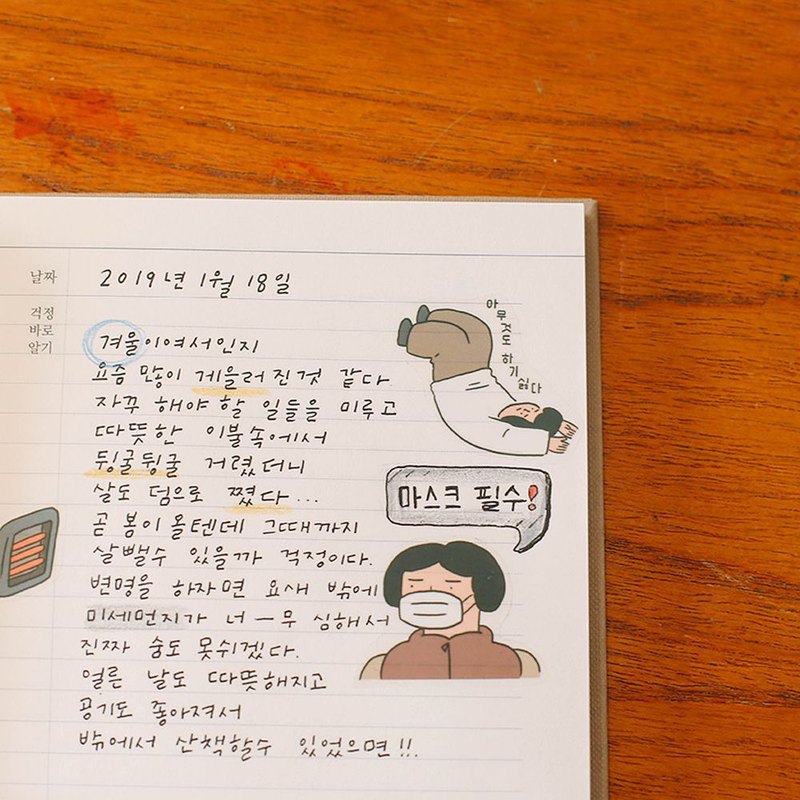 날짜
2019년 1월 18일
걱정
바로
알기
겨울이여서인지
요즘 많이 게을러진것 같다
자꾸 해야 할 일들을 미루고
따뜻한 이불속에서
뒹굴뒹굴 거렸더니
살도 덤으로 쪘다...
곧 봄이 올텐데 그때까지
살뺄수 있을까 걱정이다.
변명을 하자면 요새 밖에
미세먼지가 너ㅡ무 심해서
진짜 숨도 못쉬겠다.
얼른 날도 따뜻해지고
공기도 좋아져서
밖에서 산책할수 있었으면!!.
아무것도 하기 싫다
마스크 필수!